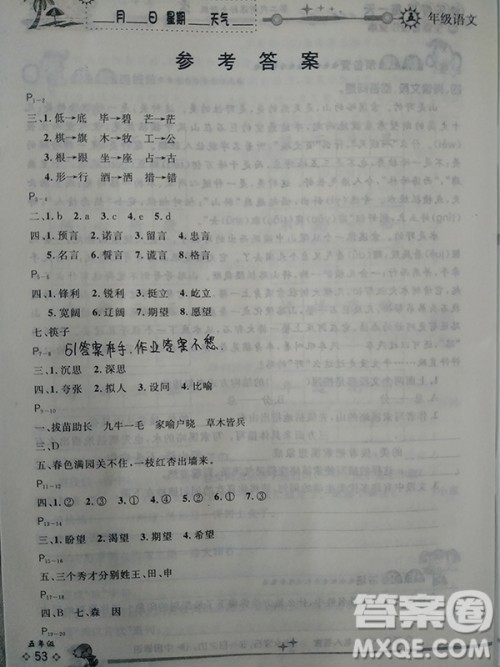 月 日 星期 天气
五 年级语文
参考答案
P1-2
三、1.低→底 毕→碧 芒→茫
2.棋→旗 木→牧 工→公
3.根→跟 坐→座 占→古
4.形→行 洒→洒 措→错
P3-4
二、1.b 2.a 3.c 4.e 5.d
四、1.预言 2.诺言 3.留言 4.忠言
5.名言 6.誓言 7.谎言 8.格言
P5-6
四、1.锋利 2.锐利 3.挺立 4.屹立
5.宽阔 6.辽阔 7.期望 8.愿望
七、筷子
P7-8
51答案有手，作业答案不愁
三、1.沉思 2.深思
四、1.夸张 2.拟人 3.设问 4.比喻
P9-10
一、拔苗助长 九牛一毛 家喻户晓 草木皆兵
三、D
五、春色满园关不住，一枝红杏出墙来。
P11-12
四、1.② 2.① 3.② 4.⑤ 5.② 6.① 7.①
P13-14
一、1.盼望 2.渴望 3.期望 4.希望
P15-16
五、三个秀才分别姓王、田、申
P17-18
四、B 七、森 因
P19-20
五年级
53
答案圈
MXQE.COM